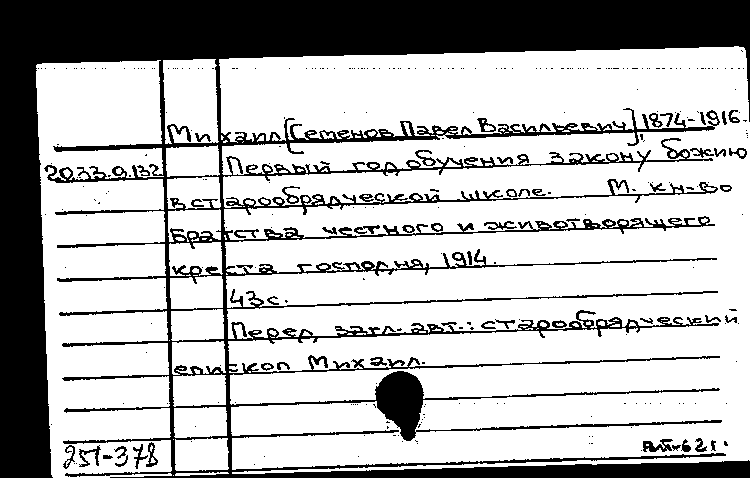 Михаил [Семенов Павел Васильевич], 1874-1916.
20.33.9.132 Первый год обучения закону божию
в старообрядческой школе. М., кн-во
Братства честного и животворящего
креста господня, 1914.
43 с.
Перед загл. авт.: старообрядческий
епископ Михаил.
251-378